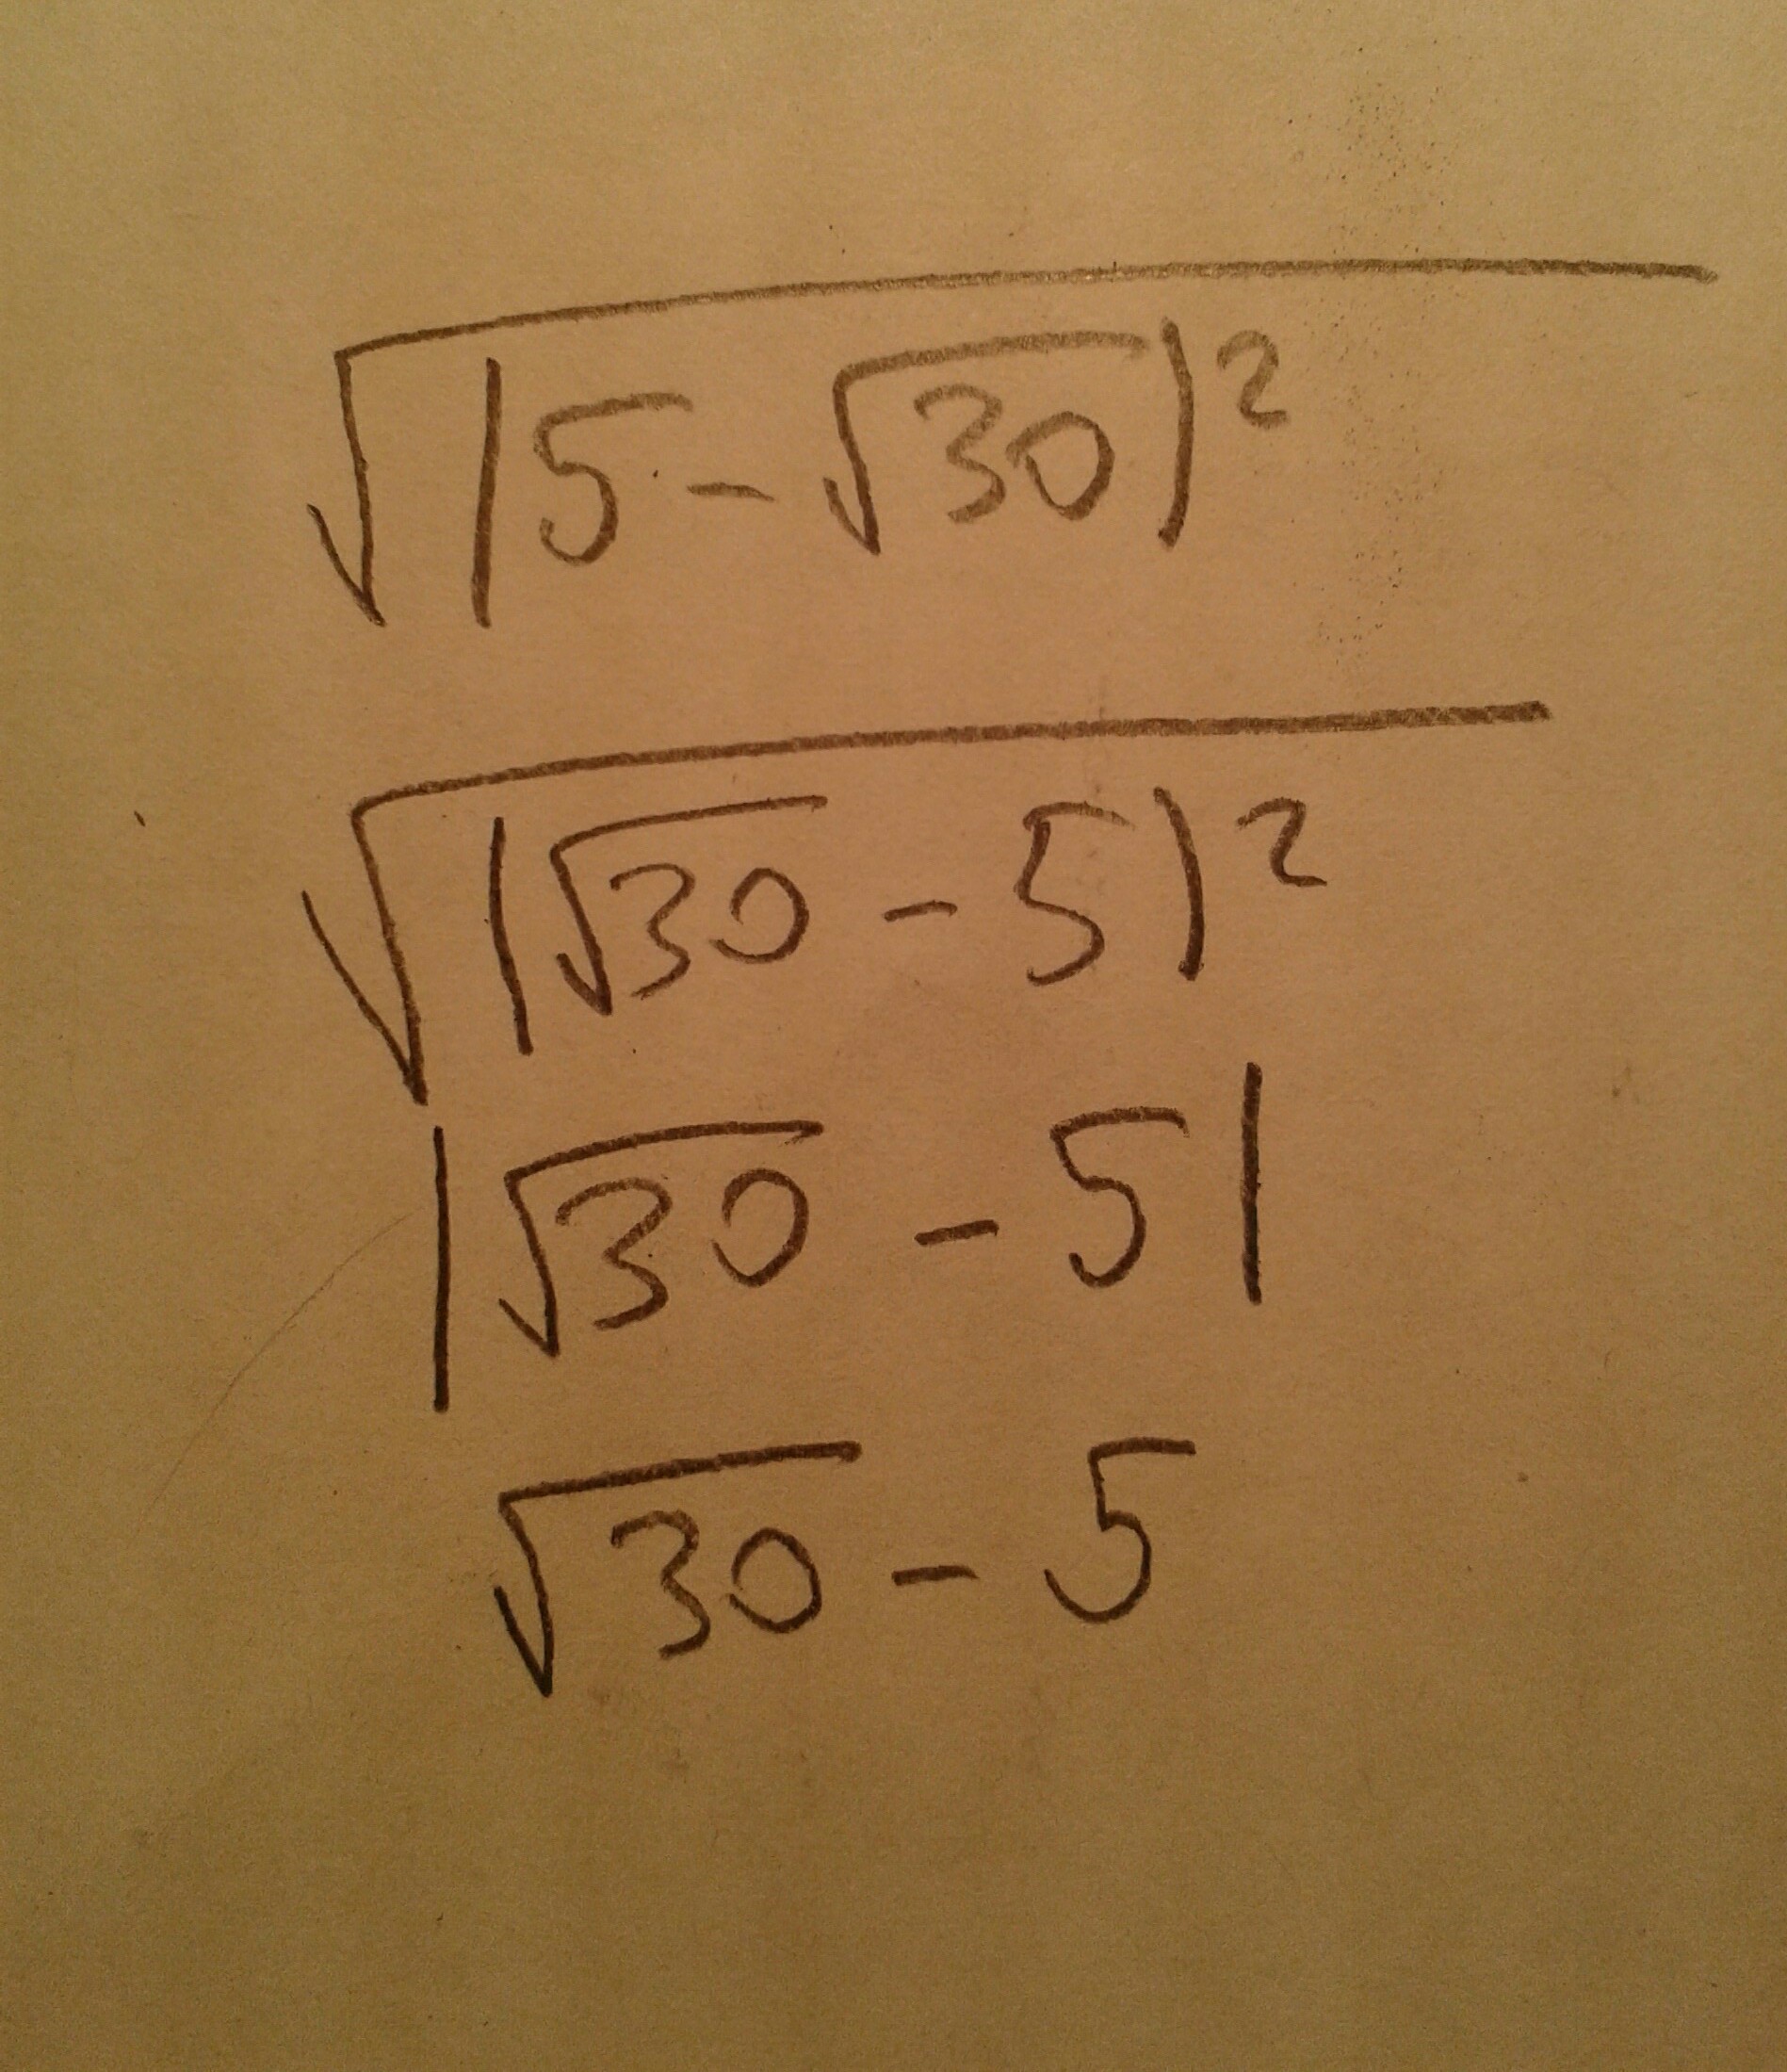 √|5-√30|²
√|√30-5|²
|√30-5|
√30-5